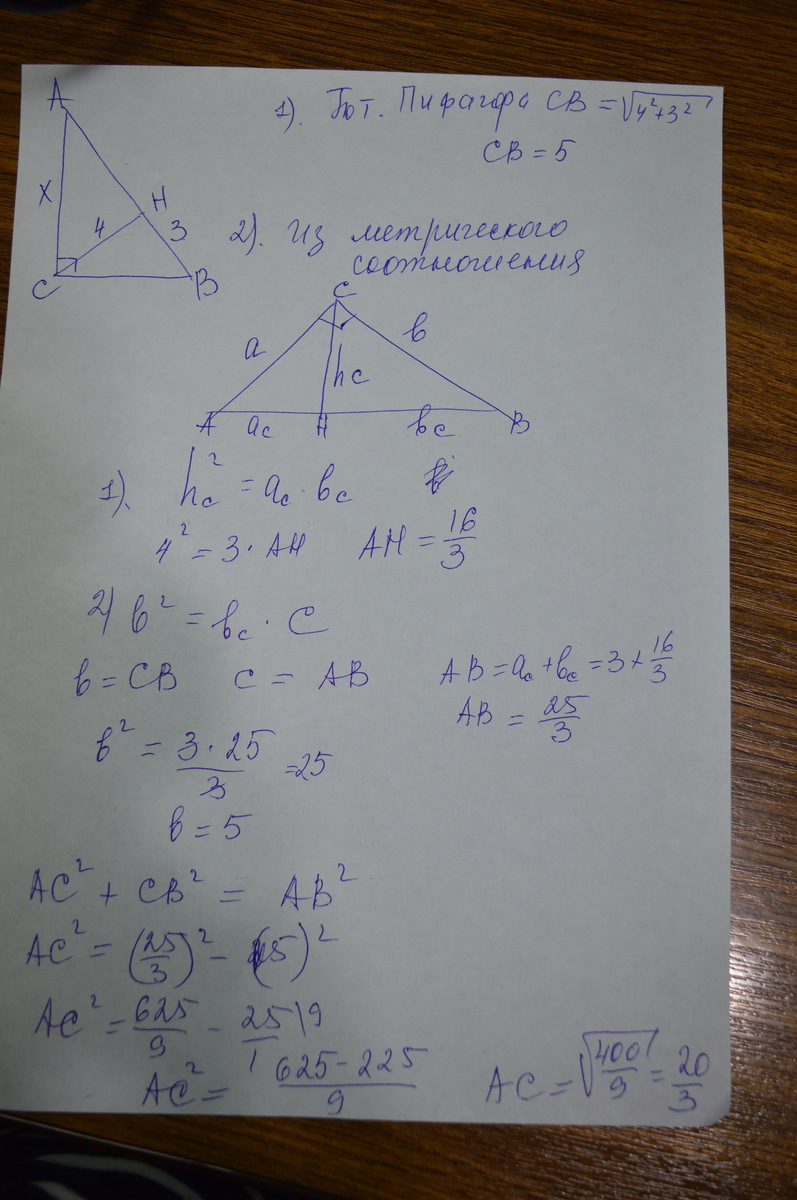 A
X
4
H
3
C
B
1). По т. Пифагора CB = √4²+3²
CB = 5
2). Из метрического
соотношения
C
a
b
hc
A
ac
H
bc
B
1). hc² = ac · bc
4² = 3 · AH AH = 16/3
2) b² = bc · C
b = CB c = AB AB = ac + bc = 3 + 16/3
AB = 25/3
b² = 3·25/3 = 25
b = 5
AC² + CB² = AB²
AC² = (25/3)² - (5)²
AC² = 625/9 - 25/1 \9
AC² = 625-225/9 AC = √400/9 = 20/3